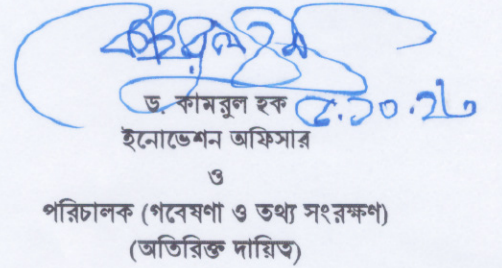 ড. কামরুল হক
ইনোভেশন অফিসার
ও
পরিচালক (গবেষণা ও তথ্য সংরক্ষণ)
(অতিরিক্ত দায়িত্ব)